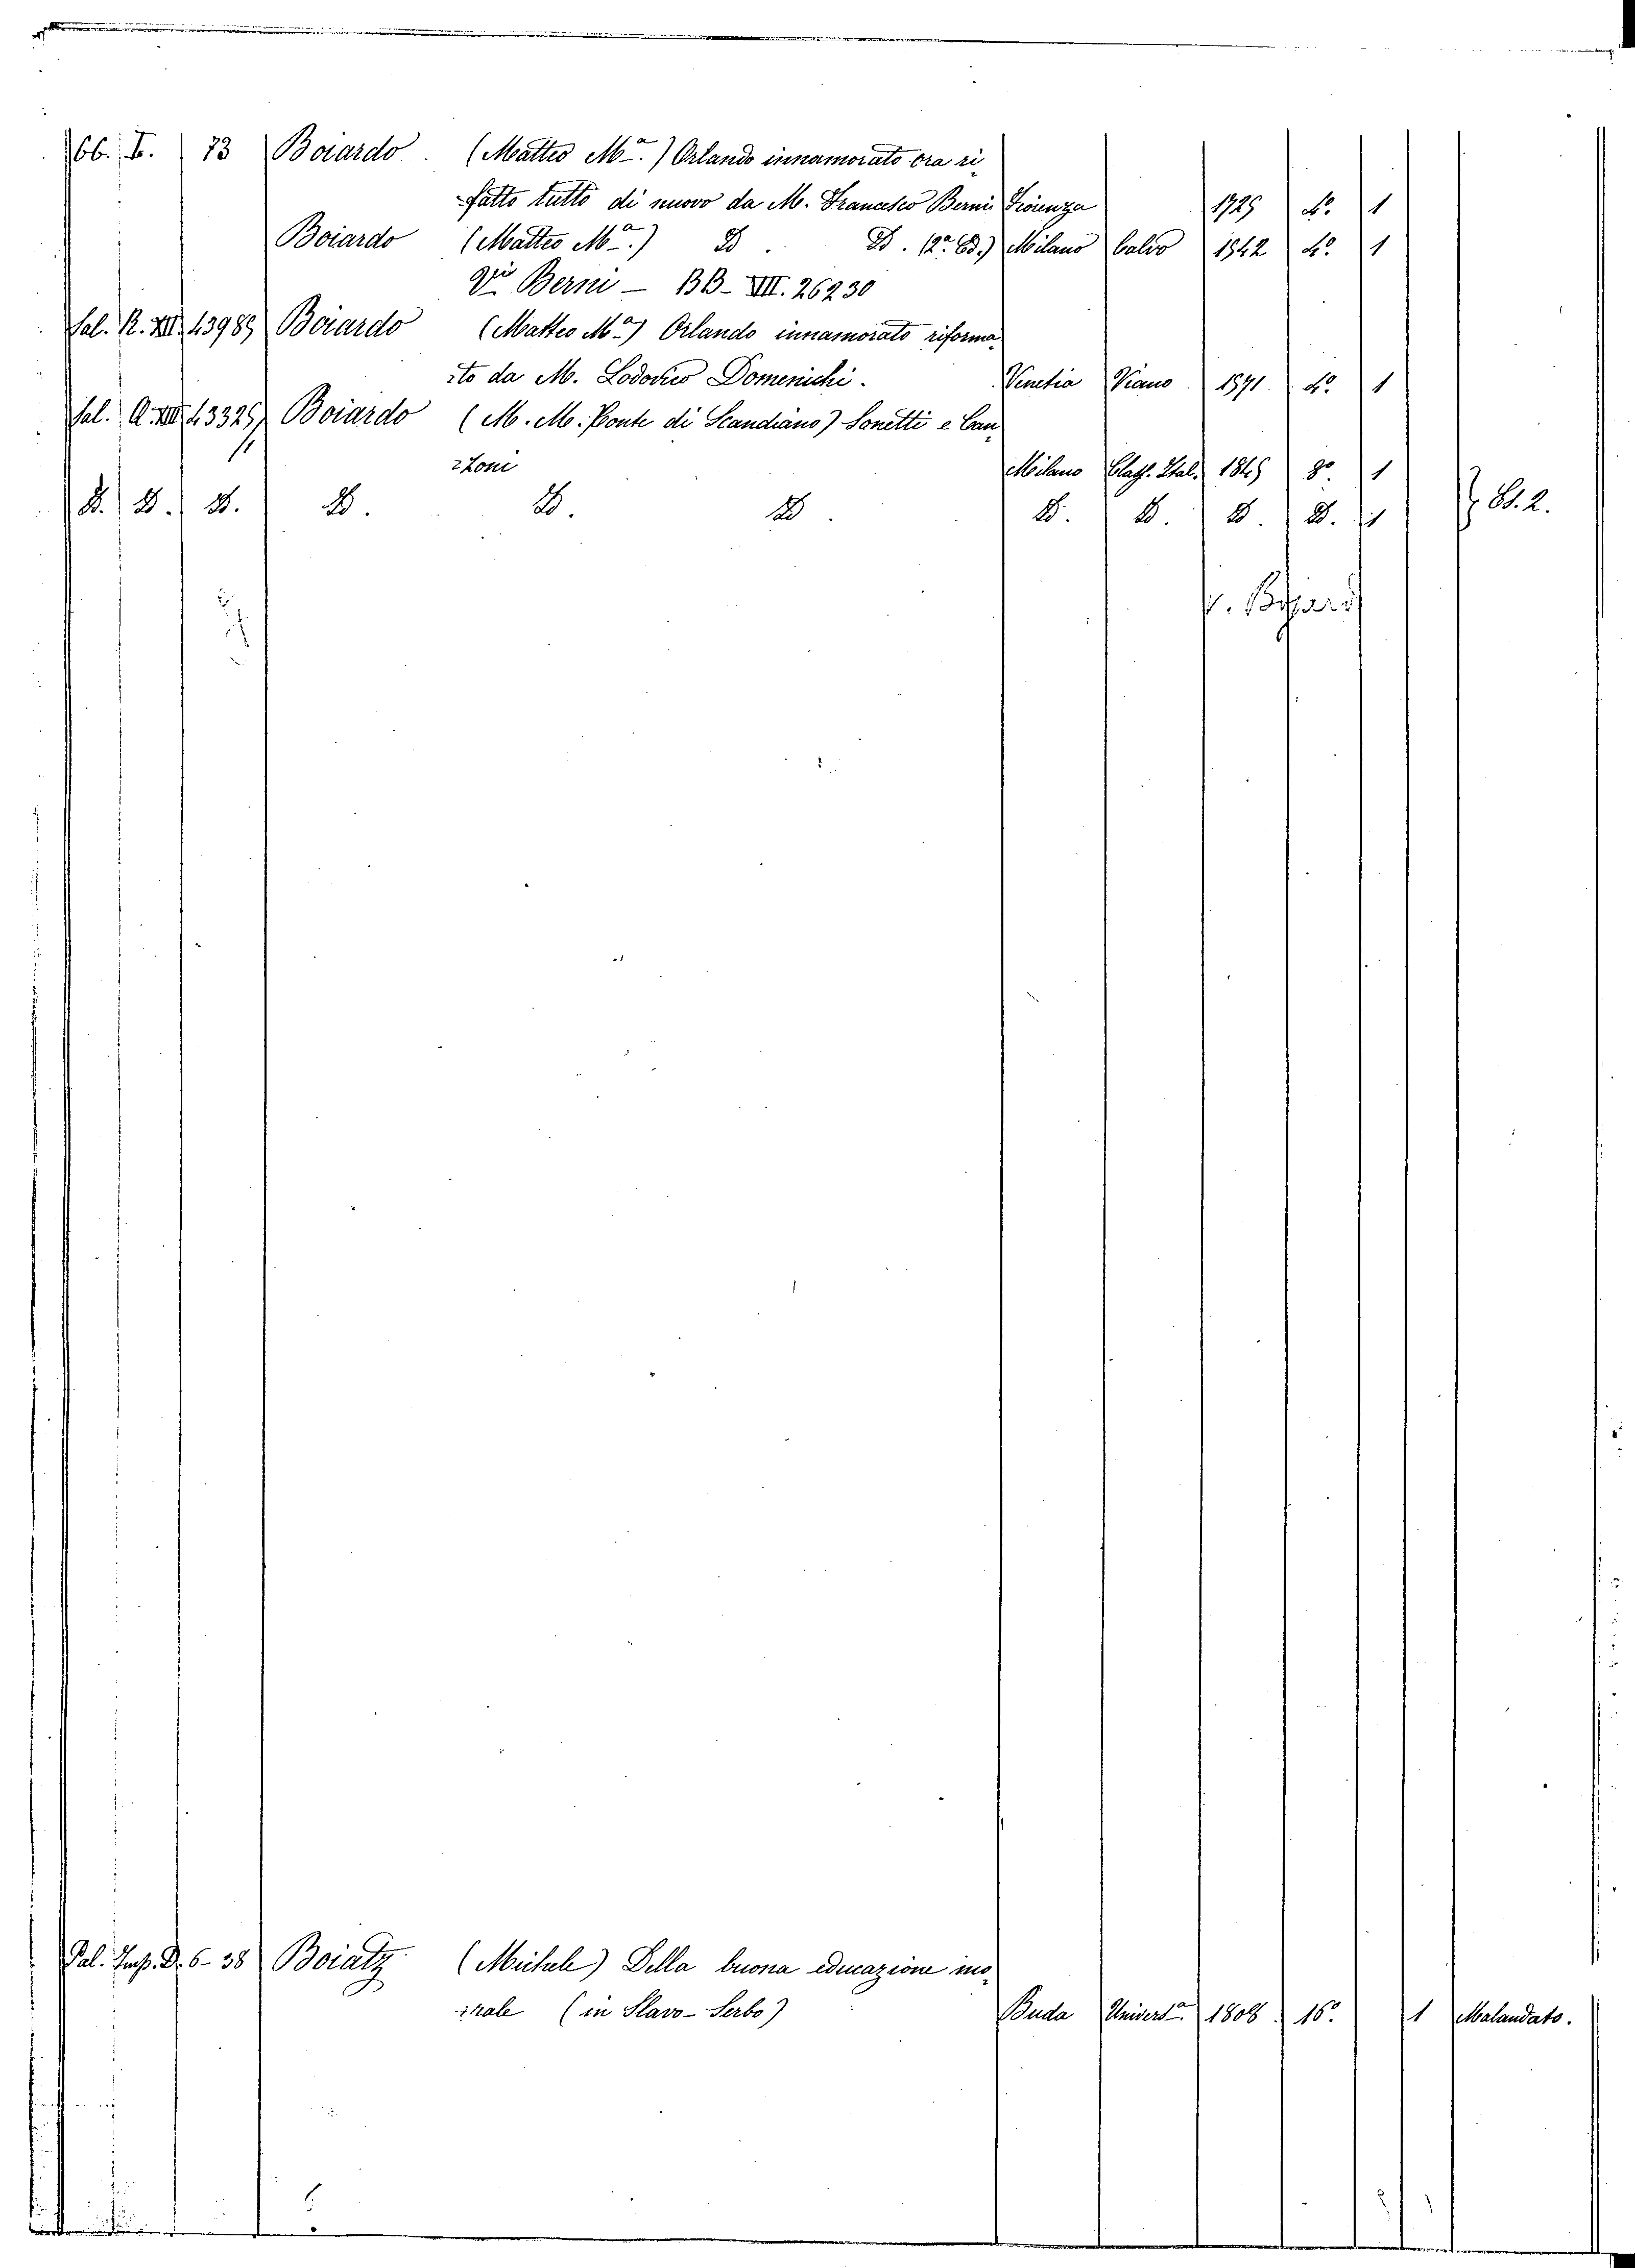 66. I. 73 Boiardo (Matteo Mª.) Orlando innamorato ora ri
-fatto tutto di nuovo da M. Francesco Berni Fiorenza 1725 4º. 1
Boiardo (Matteo Mª.) D. D. (2ª. Ed.) Milano Calvo 1542 4º. 1
Vedi Berni — BB- VIII. 26230
Sal. R. XII. 43989 Boiardo (Matteo Mª) Orlando innamorato riforma
to da M. Lodovico Domenichi. Venetia Viano 1571 4º 1
Sal. A. 43325 Boiardo (M. M. Conte di Scandiano) Sonetti e Can
zoni Milano Class. Ital. 1845 8º 1
D. D. D. D. D. D. D. D. D. D. 1 Es. 2.
V. Bojard
Pal. Imp. D. 6-38 Boiatz (Michele) Della buona educazione mo
rale (in Slavo-Serbo) Buda Universª. 1808 16º. 1 Malandato.